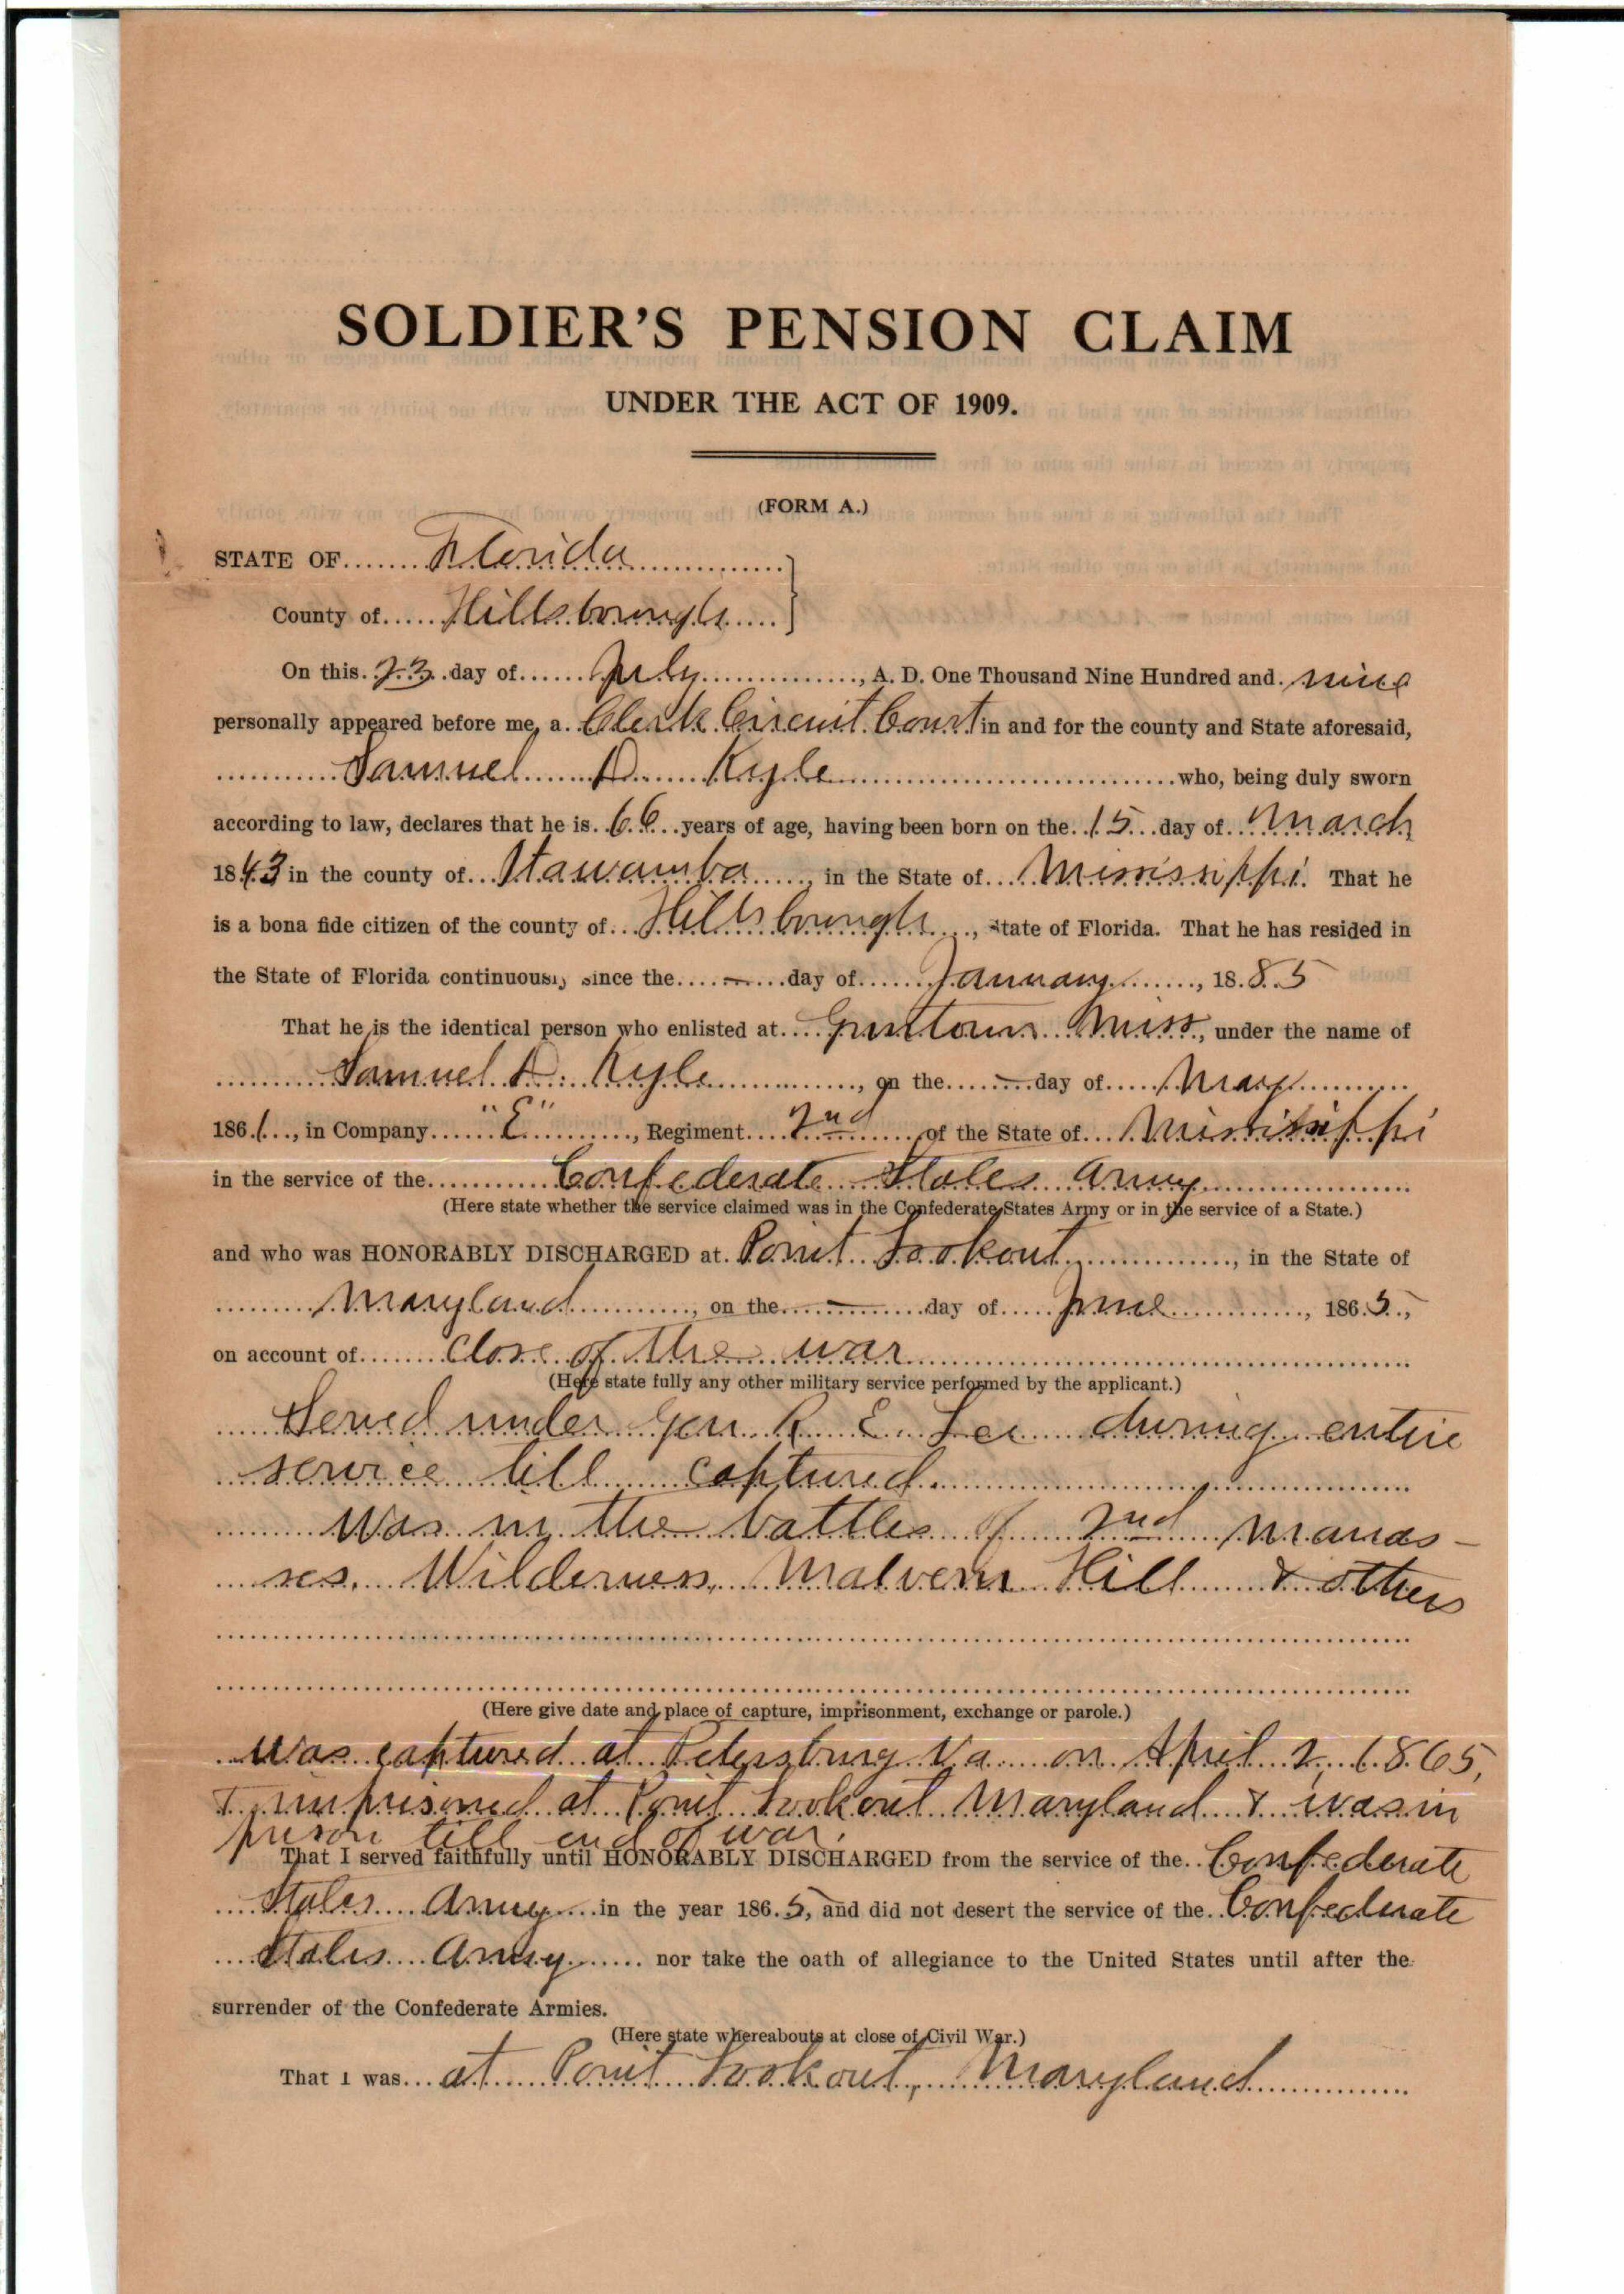 SOLDIER'S PENSION CLAIM
UNDER THE ACT OF 1909.
(FORM A.)
STATE OF Florida
County of Hillsborough
On this 23 day of July, A. D. One Thousand Nine Hundred and nine
personally appeared before me, a Clerk Circuit Court in and for the county and State aforesaid,
Samuel D. Kyle who, being duly sworn
according to law, declares that he is 66 years of age, having been born on the 15 day of March
1843 in the county of Itawamba, in the State of Mississippi. That he
is a bona fide citizen of the county of Hillsborough, State of Florida. That he has resided in
the State of Florida continuously since the — day of January, 1885
That he is the identical person who enlisted at Guntown Miss, under the name of
Samuel D. Kyle, on the — day of May
1861, in Company "E", Regiment 2nd of the State of Mississippi
in the service of the Confederate States Army
(Here state whether the service claimed was in the Confederate States Army or in the service of a State.)
and who was HONORABLY DISCHARGED at Point Lookout, in the State of
Maryland, on the — day of June, 1865,
on account of Close of the war
(Here state fully any other military service performed by the applicant.)
Served under Gen R. E. Lee during entire
service till captured.
Was in the battles of 2nd Manas-
ses, Wilderness, Malvern Hill & others
(Here give date and place of capture, imprisonment, exchange or parole.)
Was captured at Petersburg Va on April 2, 1865,
& imprisoned at Point Lookout Maryland & was in
prison till end of war.
That I served faithfully until HONORABLY DISCHARGED from the service of the Confederate
States Army in the year 1865, and did not desert the service of the Confederate
States Army nor take the oath of allegiance to the United States until after the
surrender of the Confederate Armies.
(Here state whereabouts at close of Civil War.)
That I was at Point Lookout, Maryland